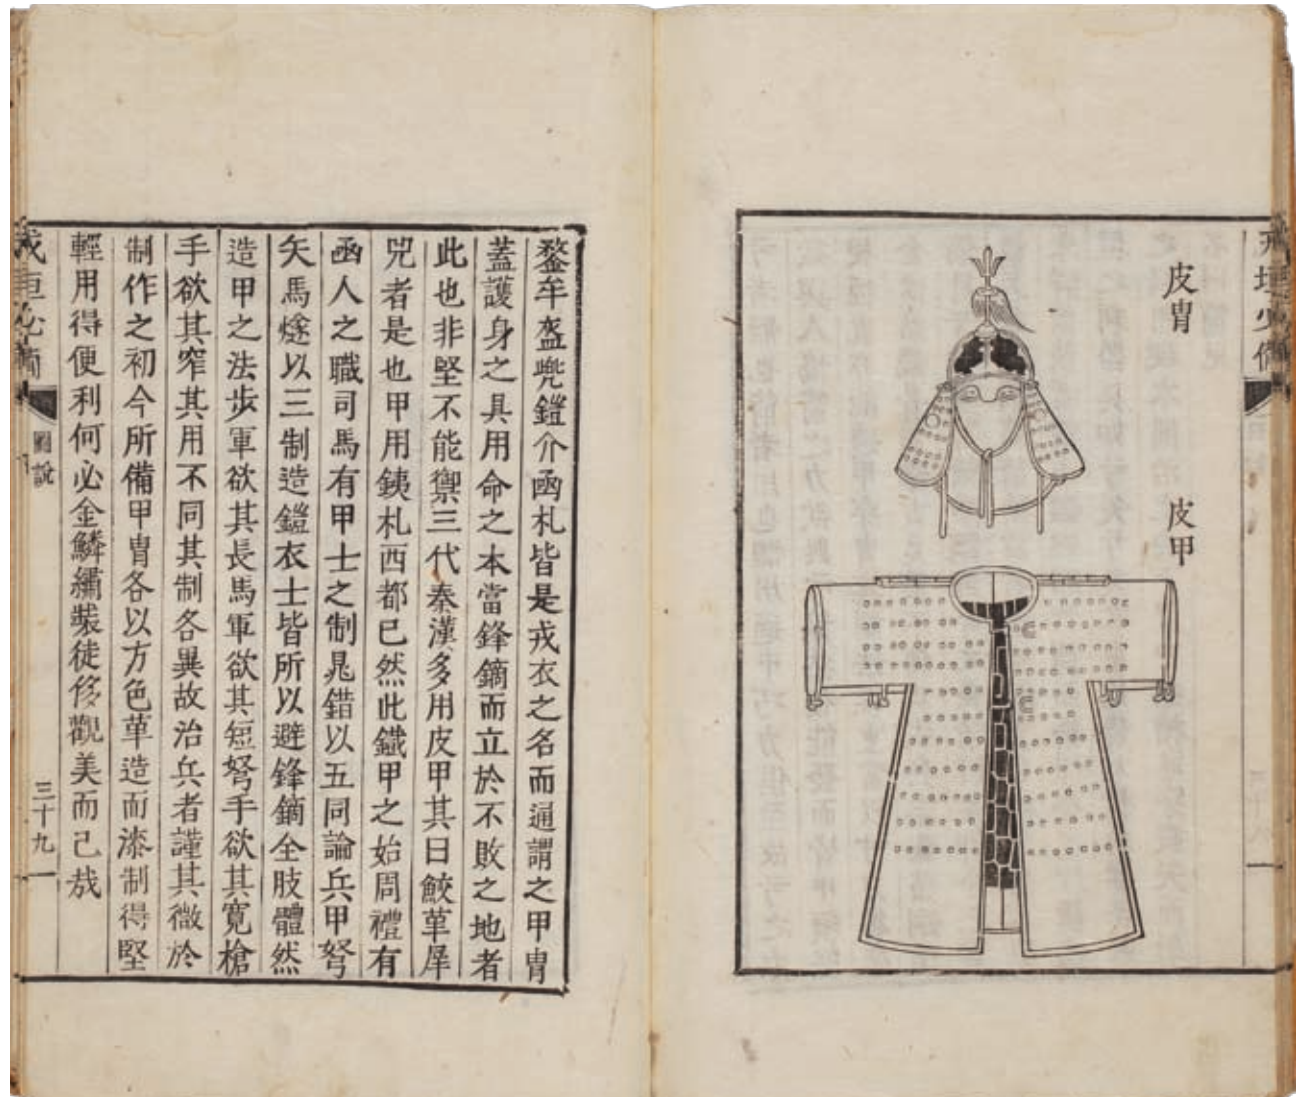 皮冑
皮甲
鍪牟盔兠鎧介函札皆是戎衣之名而通謂之甲冑
蓋護身之具用命之本當鋒鏑而立於不敗之地者
此也非堅不能禦三代秦漢多用皮甲其曰鮫革犀
兕者是也甲用銕札西都已然此鐵甲之始周禮有
函人之職司馬有甲士之制晁錯以五同論兵甲弩
矢馬燧以三制造鎧衣士皆所以避鋒鏑全肢體然
造甲之法步軍欲其長馬軍欲其短弩手欲其寬槍
手欲其窄其用不同其制各異故治兵者謹其微於
制作之初今所備甲冑各以方色革造而漆制得堅
輕用得便利何必金鱗繡裝徒侈觀美而已哉
圖說
三十九